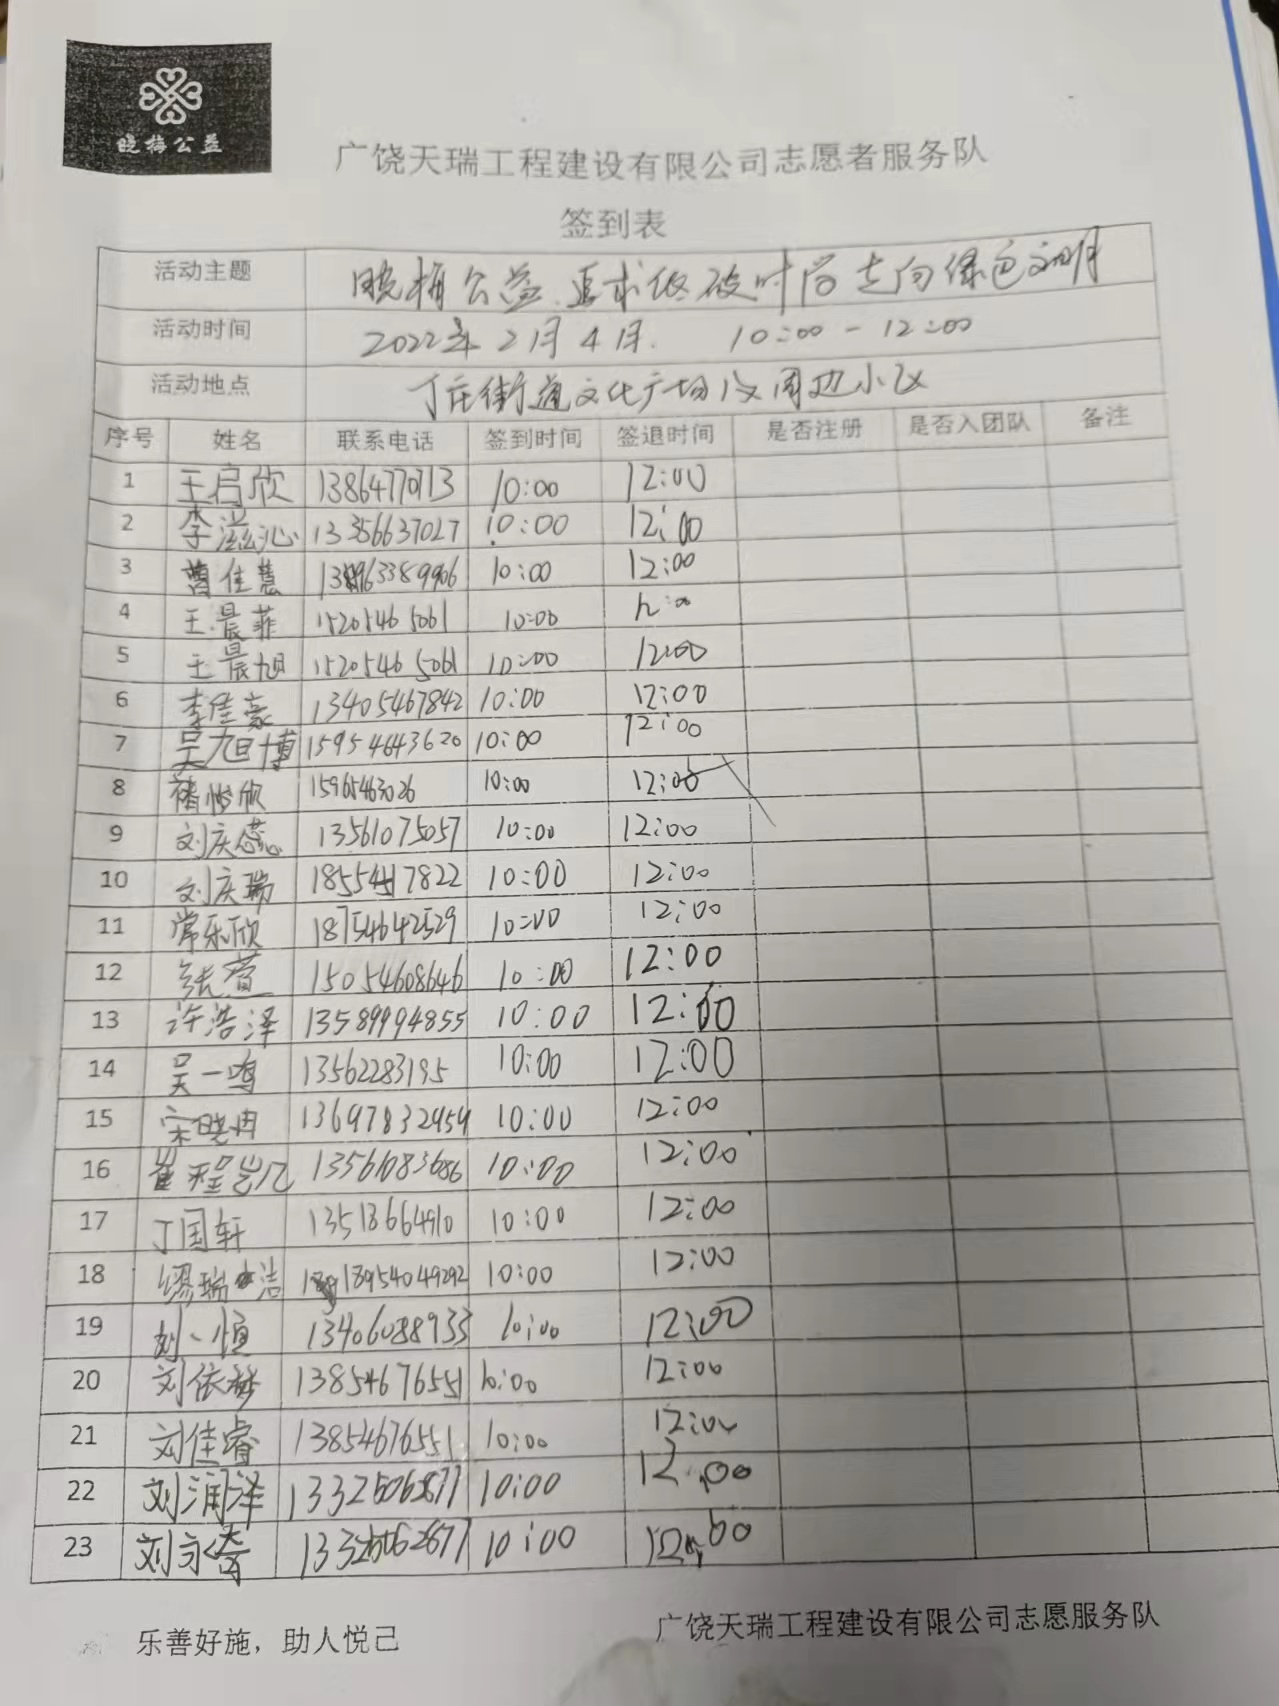 晓梅公益
广饶天瑞工程建设有限公司志愿者服务队
签到表
活动主题 晓梅公益、追求低碳时尚走向绿色文明
活动时间 2022年2月4日. 10:00-12:00
活动地点 丁庄街道文化广场及周边小区
序号 姓名 联系电话 签到时间 签退时间 是否注册 是否入团队 备注
1 王启欣 13864770713 10:00 12:00
2 李滋沁 13356637027 10:00 12:00
3 曹佳慧 10:00 12:00
4 王晨菲 15205465061 10:00 12:00
5 王晨旭 15205465061 10:00 12:00
6 李佳豪 13405467842 10:00 12:00
7 吴旭博 15954643620 10:00 12:00
8 褚悦欣 15965463026 10:00 12:00
9 刘庆蕊 13561075057 10:00 12:00
10 刘庆瑞 10:00 12:00
11 常乐欣 18754642529 10:00 12:00
12 张萱 15054608646 10:00 12:00
13 许浩泽 13589994855 10:00 12:00
14 吴一鸣 13562283195 10:00 12:00
15 宋晓冉 13697832959 10:00 12:00
16 崔程岂凡 13561083686 10:00 12:00
17 丁国轩 10:00 12:00
18 缪瑞洁 18954049292 10:00 12:00
19 刘一恒 13406088933 10:00 12:00
20 刘依梦 13854676551 10:00 12:00
21 刘佳睿 13854676551 10:00 12:00
22 刘润泽 13325062677 10:00 12:00
23 刘 13325062677 10:00 12:00
乐善好施，助人悦己
广饶天瑞工程建设有限公司志愿服务队